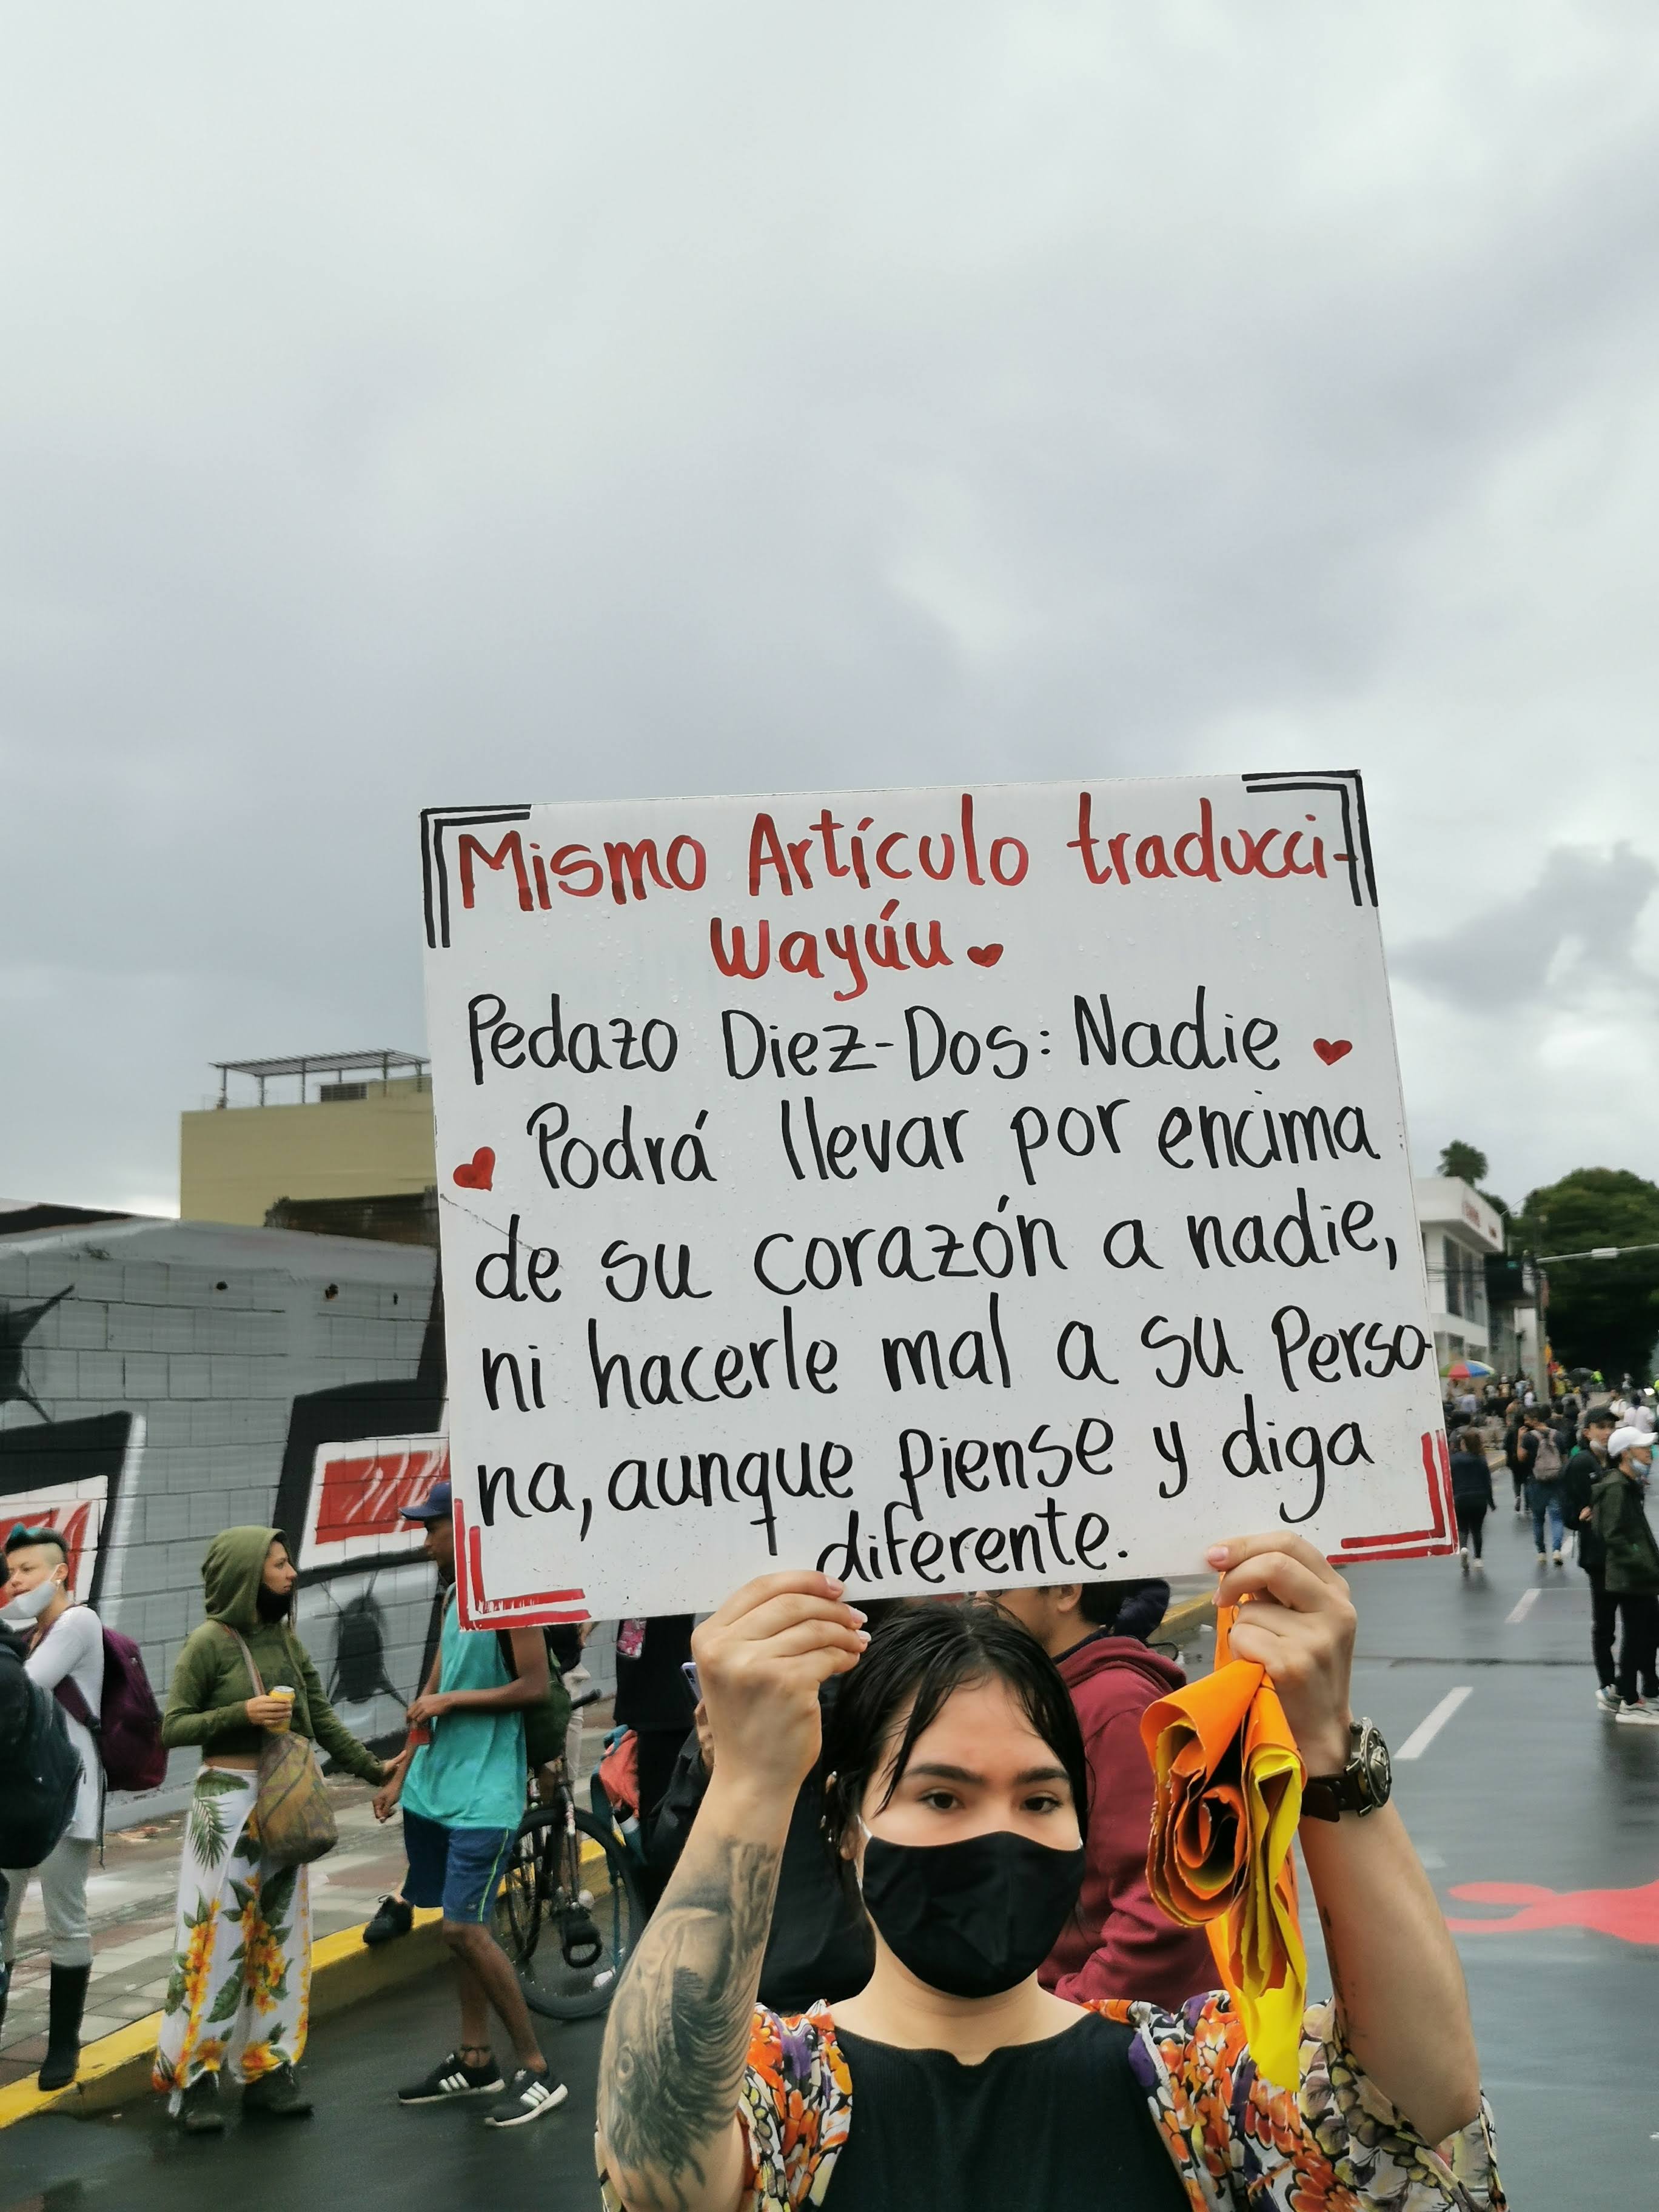 Mismo Artículo traducci-
Wayúu.
Pedazo Diez-Dos: Nadie
Podrá llevar por encima
de su corazón a nadie,
ni hacerle mal a su Perso-
na, aunque piense y diga
diferente.